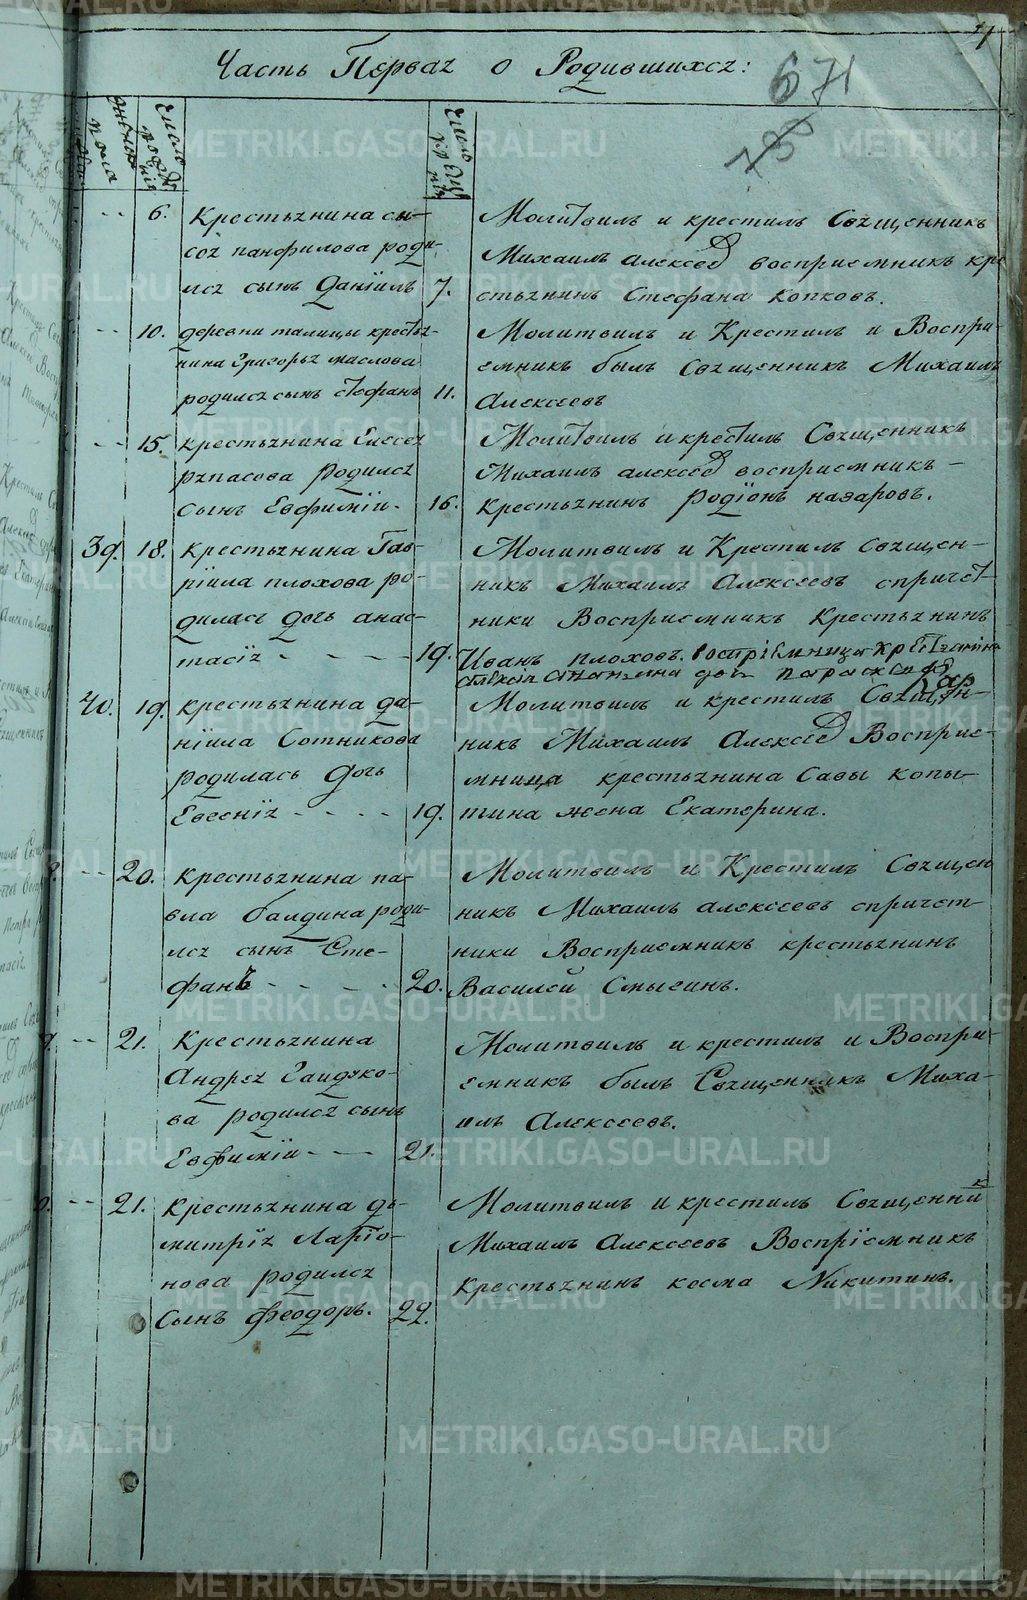 Часть Первая о Родившихся:
671
Число рождения
Число крещения
6. Крестьянина Сы-
соя панфилова роди-
лся сынъ Данiилъ 7.
Молитвилъ и крестилъ Священникъ
Михаилъ алексеев восприемникъ кре
стьянинъ Стефана копковъ.
10. деревни талицы крестья-
нина Григорья маслова
родился сынъ стефанъ 11.
Молитвилъ и Крестилъ и Воспри-
емникъ былъ Священникъ Михаилъ
Алексеевъ
15. крестьянина Елесея
ряпасова родился
сынъ Евфимiи. 16.
Молитвилъ и крестилъ Священникъ
Михаилъ алексеев восприемникъ -
крестьянинъ родiонъ назаровъ.
39. 18. крестьянина Гав-
рiила плохова ро-
дилась дочь анас-
тасiя - - - - 19.
Молитвилъ и Крестилъ священ-
никъ Михаилъ Алексеевъ спричет-
ники Восприемникъ Крестьянинъ
Иванъ плоховъ. востріемница крестьянина
дочь параскева
40. 19. крестьянина да-
нiила Сотникова
родилась дочь
Евгенiя - - - - 19.
Молитвилъ и крестилъ Священ-
никъ Михаилъ Алексеев Восприе-
мница крестьянина Савы копы-
тина жена Екатерина.
20. крестьянина па-
вла балдина роди-
лся сынъ Сте-
фанъ - - - - 20.
Молитвилъ и Крестилъ Священ
никъ Михаилъ алексеевъ спричет-
ники Восприемникъ крестьянинъ
Василей Смыгинъ.
21. Крестьянина
Андрея Гаидуко-
ва родился сынъ
Евфимiи - - - 21.
Молитвилъ и крестилъ и Воспри-
емникъ былъ Священникъ Миха-
илъ Алексеевъ.
21. крестьянина ди-
митрiя Ларiо-
нова родился
Сынъ феодоръ. 22.
Молитвилъ и крестилъ Священник
Михаилъ Алексеевъ Воспрiемникъ
крестьянинъ косма Никитинъ.
METRIKI.GASO-URAL.RU